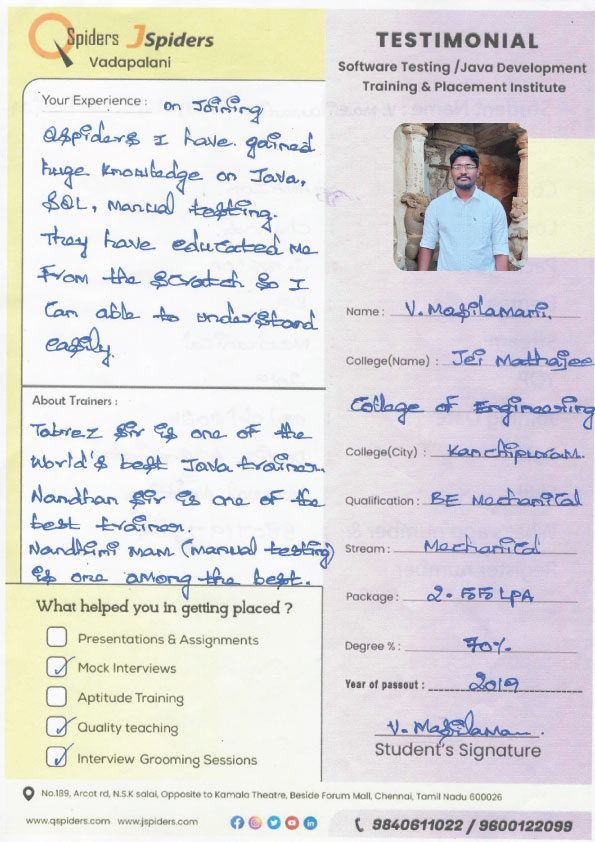 QSpiders JSpiders
Vadapalani
Your Experience : on Joining
QSpiders I have gained
huge knowledge on Java,
SQL, Manual testing.
They have educated me
From the scratch so I
Can able to understand
easily.
About Trainers :
Tabrez sir is one of the
World's best Java trainer.
Nandhan sir is one of the
best trainer.
Nandhini mam (manual testing)
is one among the best.
What helped you in getting placed ?
Presentations & Assignments
Mock Interviews
Aptitude Training
Quality teaching
Interview Grooming Sessions
TESTIMONIAL
Software Testing /Java Development
Training & Placement Institute
Name : V. Masilamani.
College(Name) : Jei Mathajee
College of Engineering
College(City) : Kanchipuram.
Qualification : BE Mechanical
Stream : Mechanical
Package : 2.55 LPA
Degree % : 70%
Year of passout : 2019
V. Masilamani
Student's Signature
No.189, Arcot rd, N.S.K salai, Opposite to Kamala Theatre, Beside Forum Mall, Chennai, Tamil Nadu 600026
www.qspiders.com www.jspiders.com
9840611022 / 9600122099